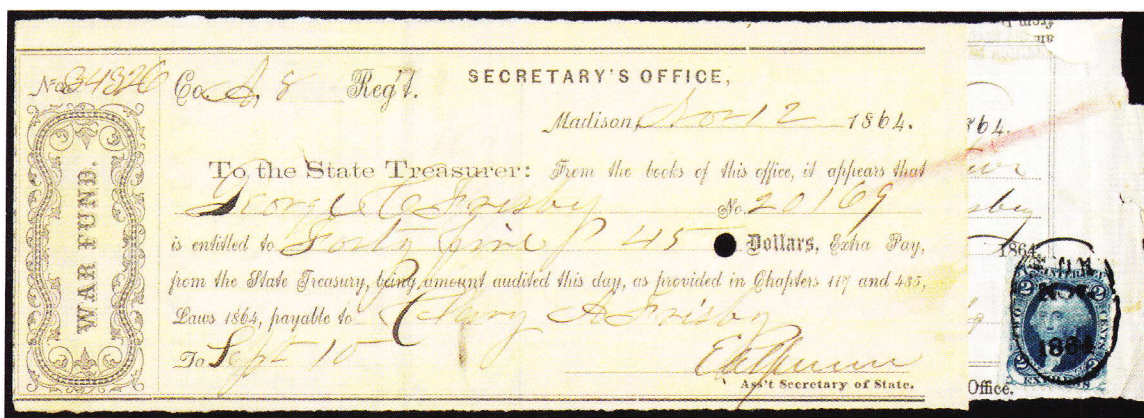 No. 34326 Co. A, 8 Reg't. SECRETARY'S OFFICE,
Madison, Nov 12 1864.
To the State Treasurer: From the books of this office, it appears that
George C Frisby No. 20169
is entitled to Forty five $ 45 Dollars, Extra Pay,
from the State Treasury, being amount audited this day, as provided in Chapters 117 and 435,
Laws 1864, payable to Mary A Frisby
To Sept 10
Ass't Secretary of State.
WAR FUND.
from
864.
sby
1864
U.S. INTER. REV.
2 2
NOV
1864
TWO CENTS
EXPRESS
Office.